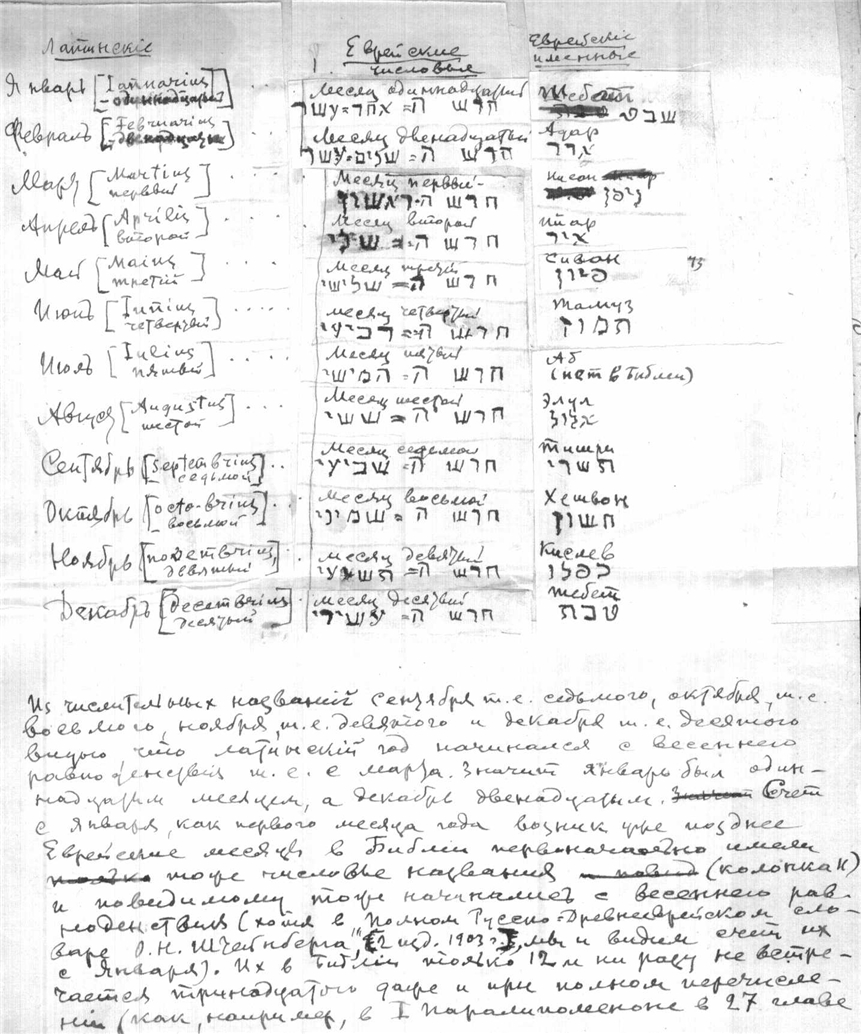 Латинскіе
Еврейские
числовые
Еврейскіе
именные
Январь [Ianuarius
Месяц одиннадцатый
Шебат
חדש ה= אחד=עשר
שבט
Февраль [Februarius
Месяц двенадцатый
Адар
חדש ה= שנים=עשר
אדר
Март [Martius
первый]
Месяц первый
нисан
חדש ה=ראשון
ניסן
Апрель [Aprilis
второй]
Месяц второй
חדש ה= שני
איר
Май [Maius
третій]
Месяц третій
Сиван
חדש ה= שלישי
סיון
Июнь [Iunius
четвертый]
месяц четвертый
Тамуз
חדש ה= רביעי
תמוז
Июль [Iulius
пятый]
Месяц пятый
Аб
חדש ה= חמישי
(нет в Библии)
Август [Augustus
шестой]
Месяц шестой
Элул
חדש ה= ששי
אלול
Сентябрь [septembrius
седьмой]
Месяц седьмой
Тишри
חדש ה= שביעי
תשרי
Октябрь [octo-brius
восьмой]
Месяц восьмой
Хешван
חדש ה= שמיני
חשון
Ноябрь [novembrius
девятый]
месяц девятый
Кислев
חדש ה= תשיעי
כסלו
Декабрь [decembrius
десятый]
месяц десятый
Тебет
חדש ה= עשירי
טבת
Из числительных названій сентября т.е. седьмого, октября, т.е.
восьмого, ноября, т.е. девятого и декабря т.е. десятого
видно что латинскій год начинался с весеннего
равноденствія т.е. с марта. Значит январь был один-
надцатым месяцем, а декабрь двенадцатым. Счет
с января, как первого месяца года возник уже позднее
Еврейские месяцы в Библіи первоначально имели
тоже числовые названия (колонка II)
и повидимому тоже начинались с весеннего рав-
ноденствия (хотя в "Полном Русско-Древнееврейском сло-
варе О.Н. Штейнберга" 2 изд. 1903 г., мы и видим счет их
с Января). Их в Библіи только 12 и ни разу не встре-
чается тринадцатого даже и при полном перечисле-
ніи (как, например, в I Паралипоменоне в 27 главе